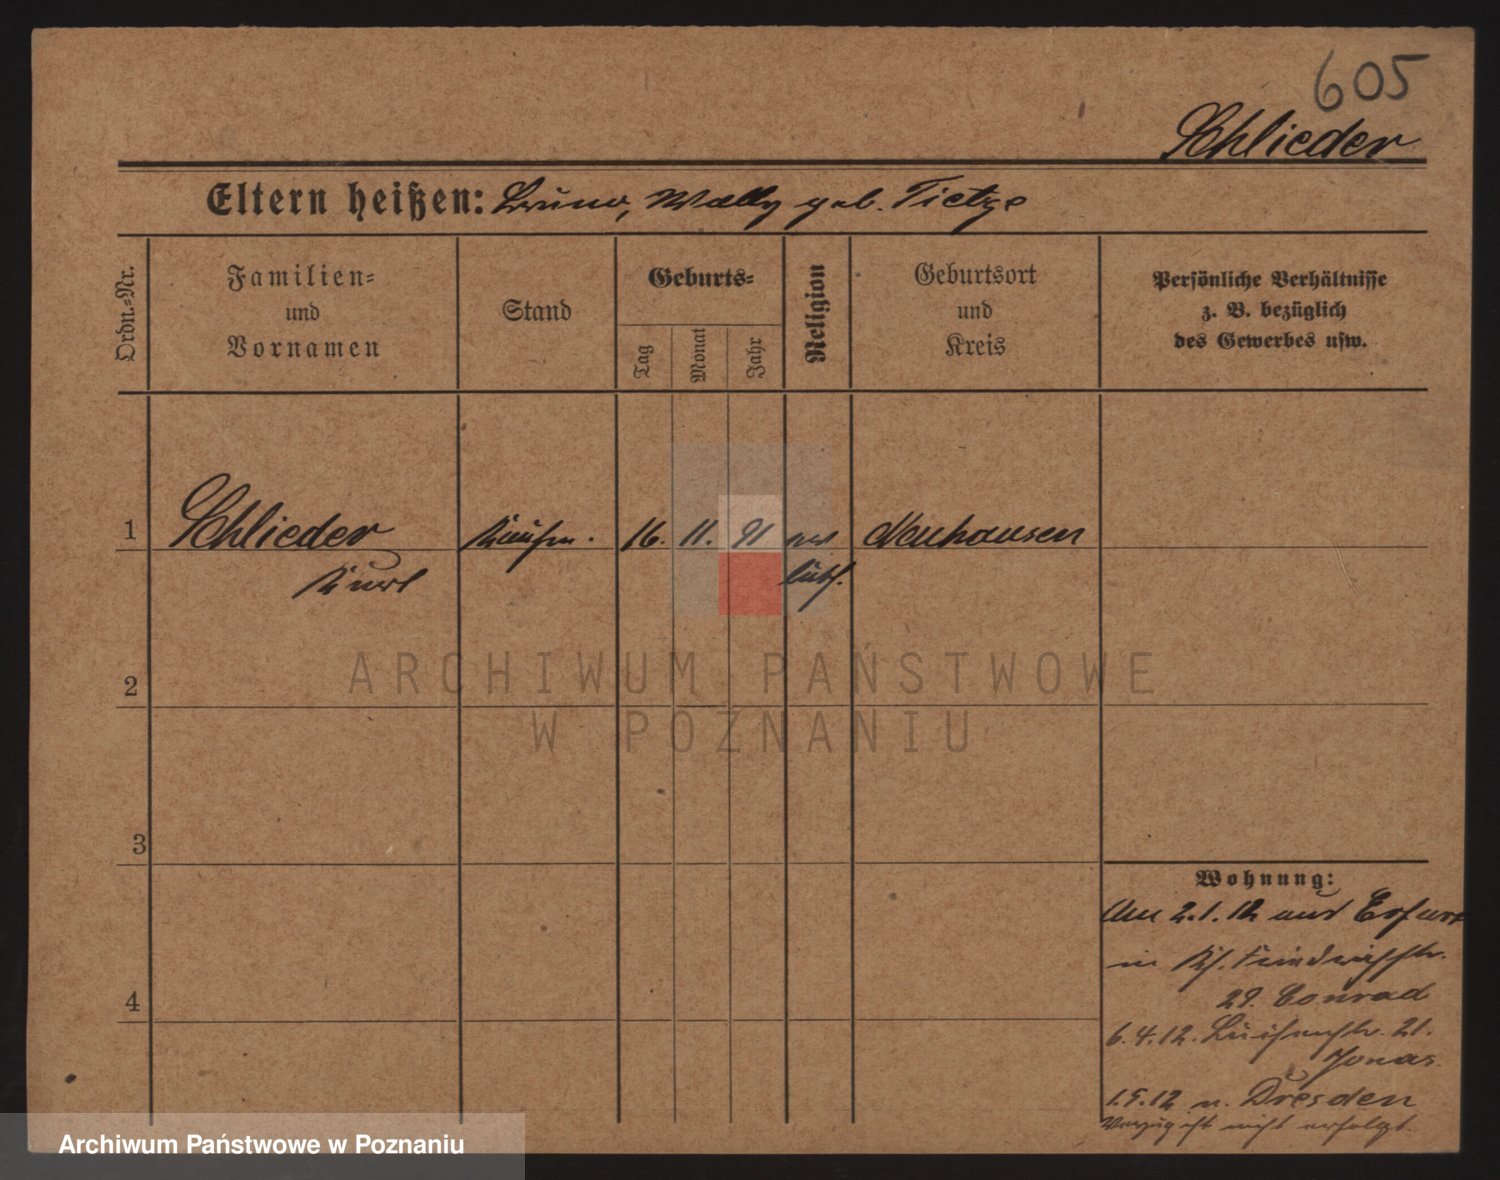 605
Schlieder
Eltern heißen: Bruno, Wally geb. Tietze
Ordn.=Nr.
Familien=
und
Vornamen
Stand
Geburts=
Tag
Monat
Jahr
Religion
Geburtsort
und
Kreis
Persönliche Verhältnisse
z. B. bezüglich
des Gewerbes usw.
1 Schlieder Kaufm. 16. 11. 91 ev. Neuhausen
Kurt luth.
ARCHIWUM PAŃSTWOWE
2
W POZNANIU
3
Wohnung:
Am 2.1.12 aus Erfurt
in
29. Conrad
4
6.4.12. Luisenstr. 21.
Jonas.
1.5.12 n. Dresden
Verzug ist nicht erfolgt.
Archiwum Państwowe w Poznaniu